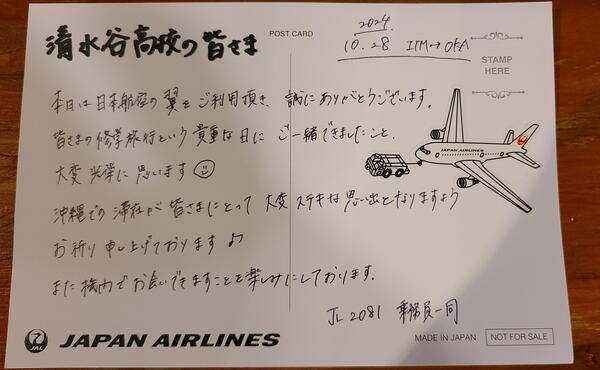 清水谷高校の皆さま
POST CARD
2024.
10.28 ITM→OKA
STAMP
HERE
本日は日本航空の翼をご利用頂き、誠にありがとうございます。
皆さまの修学旅行という貴重な日にご一緒できましたこと、
大変光栄に思います
沖縄での滞在が皆さまにとって大変ステキな思い出となりますよう
お祈り申し上げております♪
また機内でお会いできますことを楽しみにしております。
JL2081 乗務員一同
JAPAN AIRLINES
JAL
JAPAN AIRLINES
MADE IN JAPAN
NOT FOR SALE